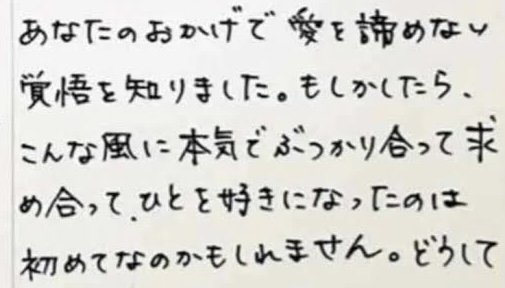 あなたのおかげで愛を諦めない
覚悟を知りました。もしかしたら、
こんな風に本気でぶつかり合って求
め合って、ひとを好きになったのは
初めてなのかもしれません。どうして